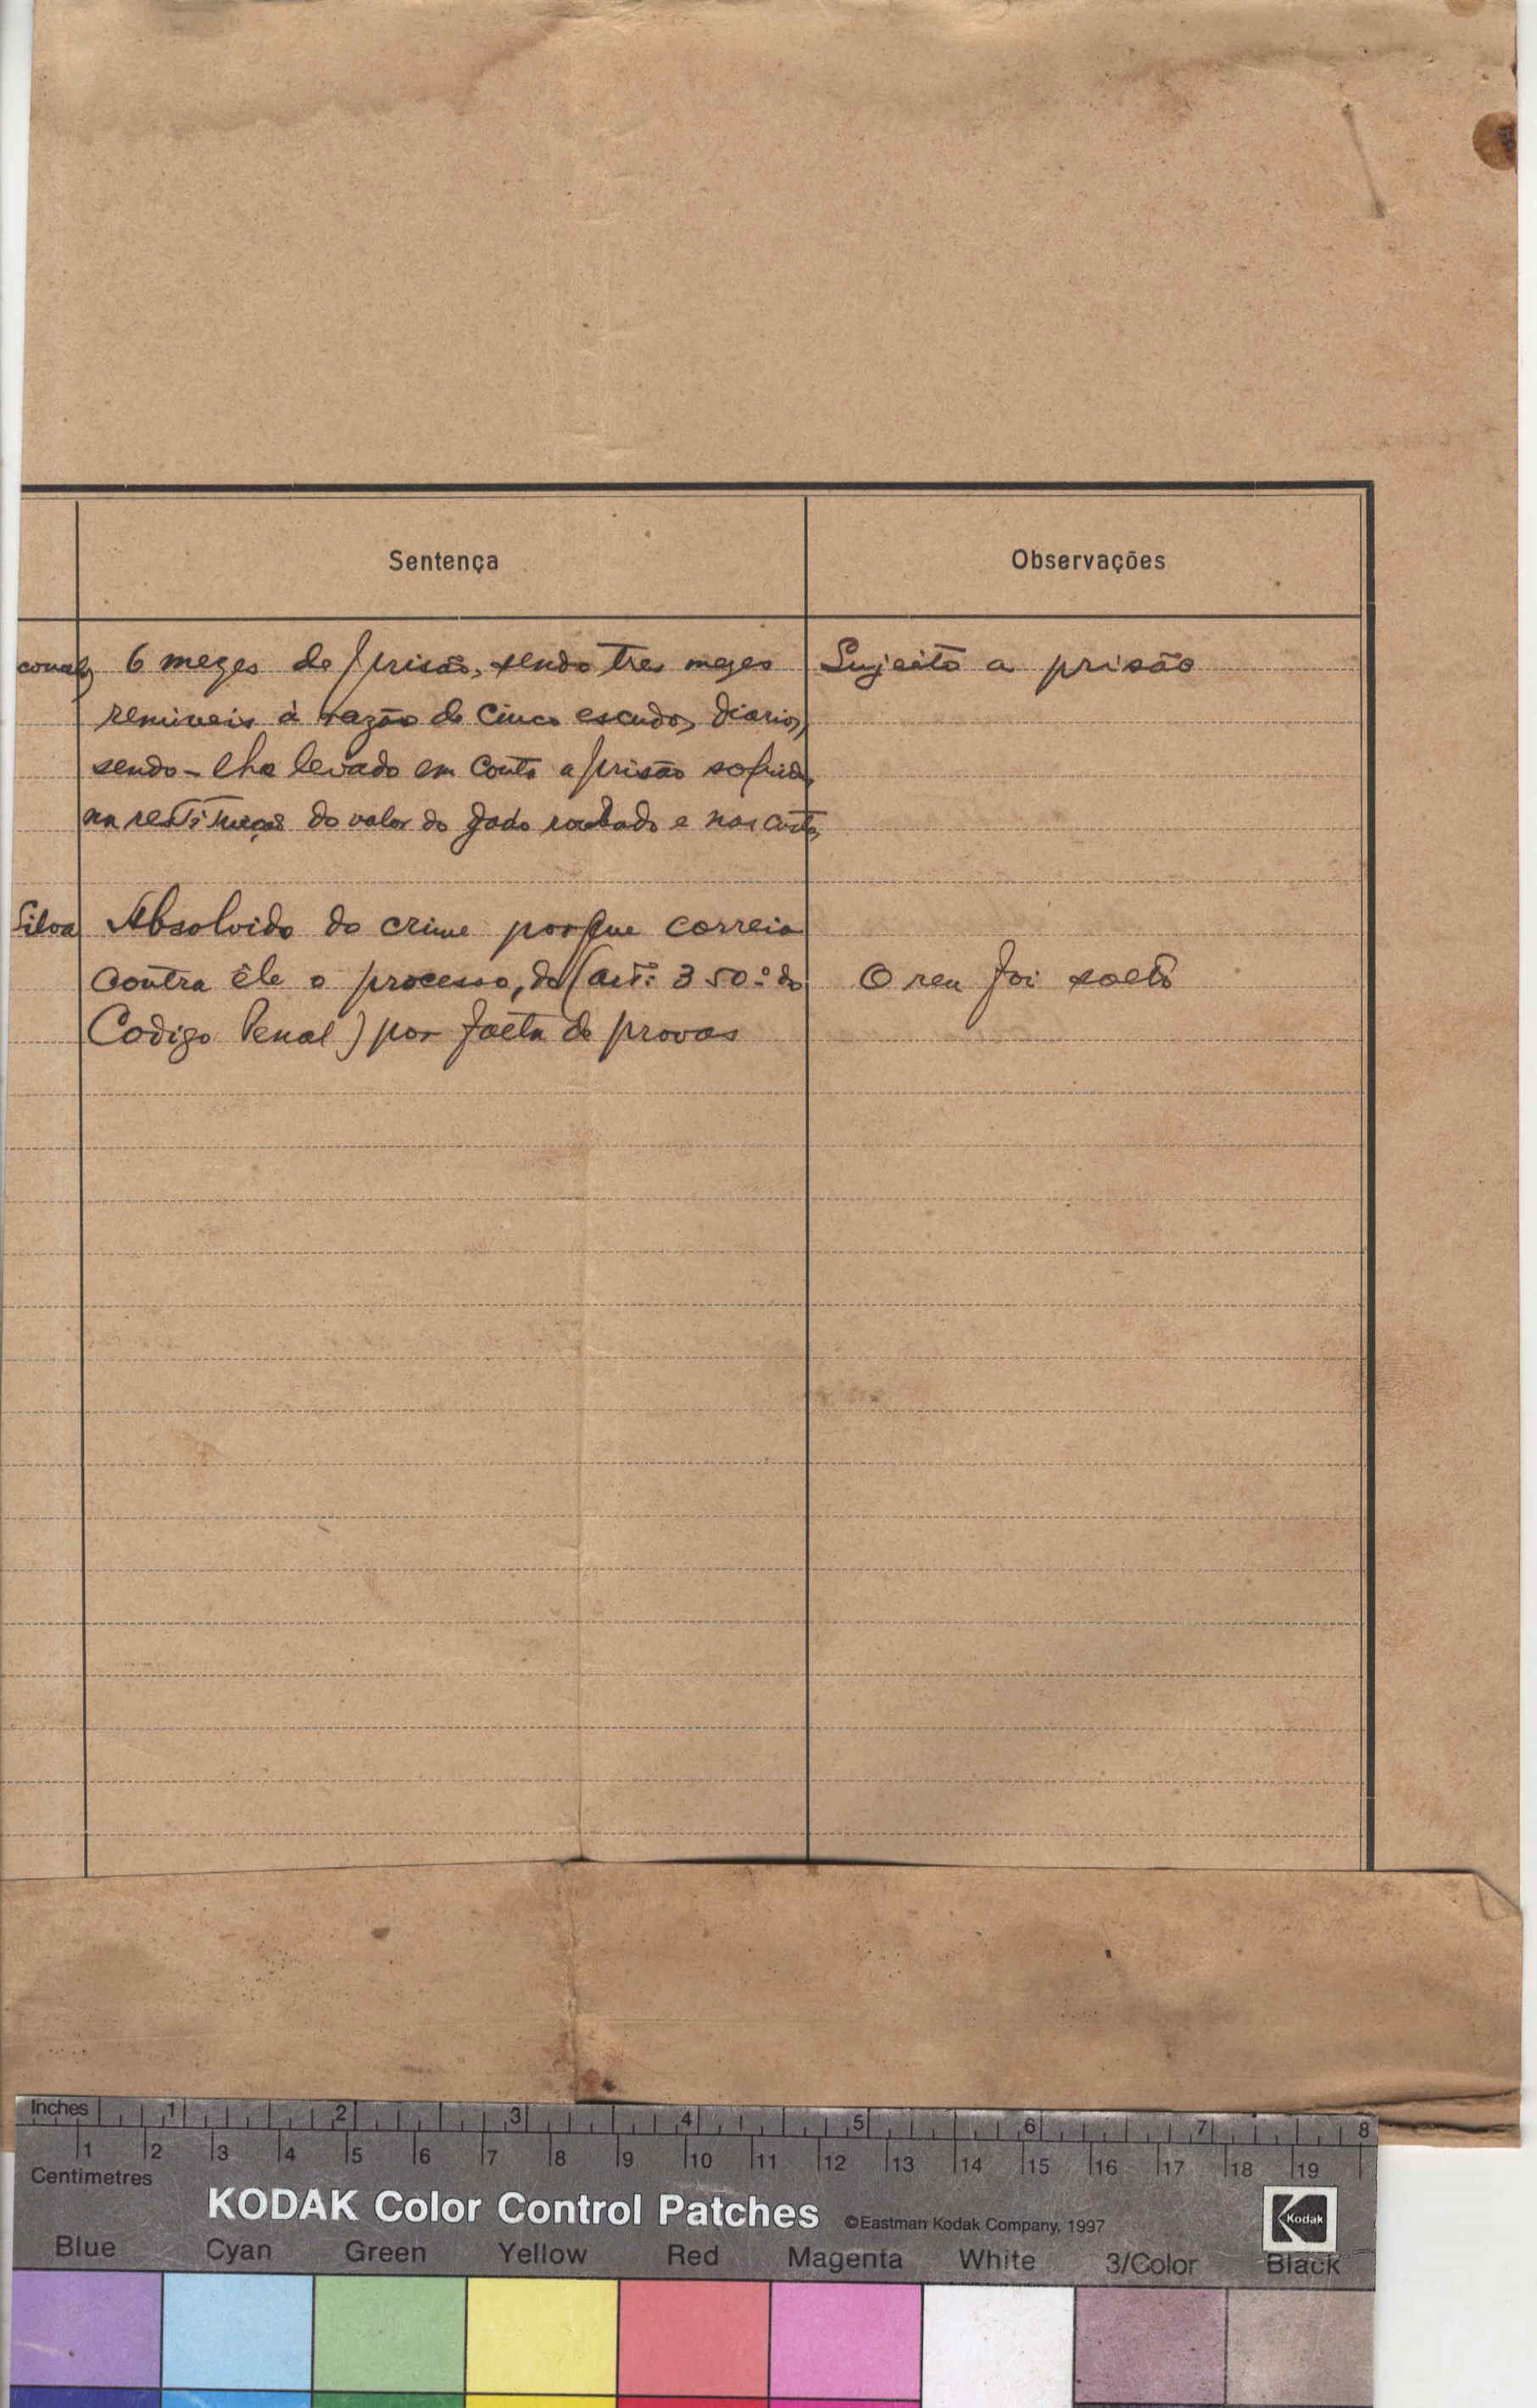 Sentença
Observações
6 mezes de prisão, sendo tres mezes
remiveis á razão de cinco escudos diarios,
sendo-lhe levado em conta a prisão sofrida,
na restituição do valor do gado roubado e nas custas
Sujeito a prisão
Silva
Absolvido do crime porque correia
contra êle o processo, do (art.º 350.º do
Codigo Penal) por falta de provas
O reu foi solto
Inches 1 2 3 4 5 6 7 8
1 2 3 4 5 6 7 8 9 10 11 12 13 14 15 16 17 18 19
Centimetres
KODAK Color Control Patches ©Eastman Kodak Company, 1997 Kodak
Blue Cyan Green Yellow Red Magenta White 3/Color Black